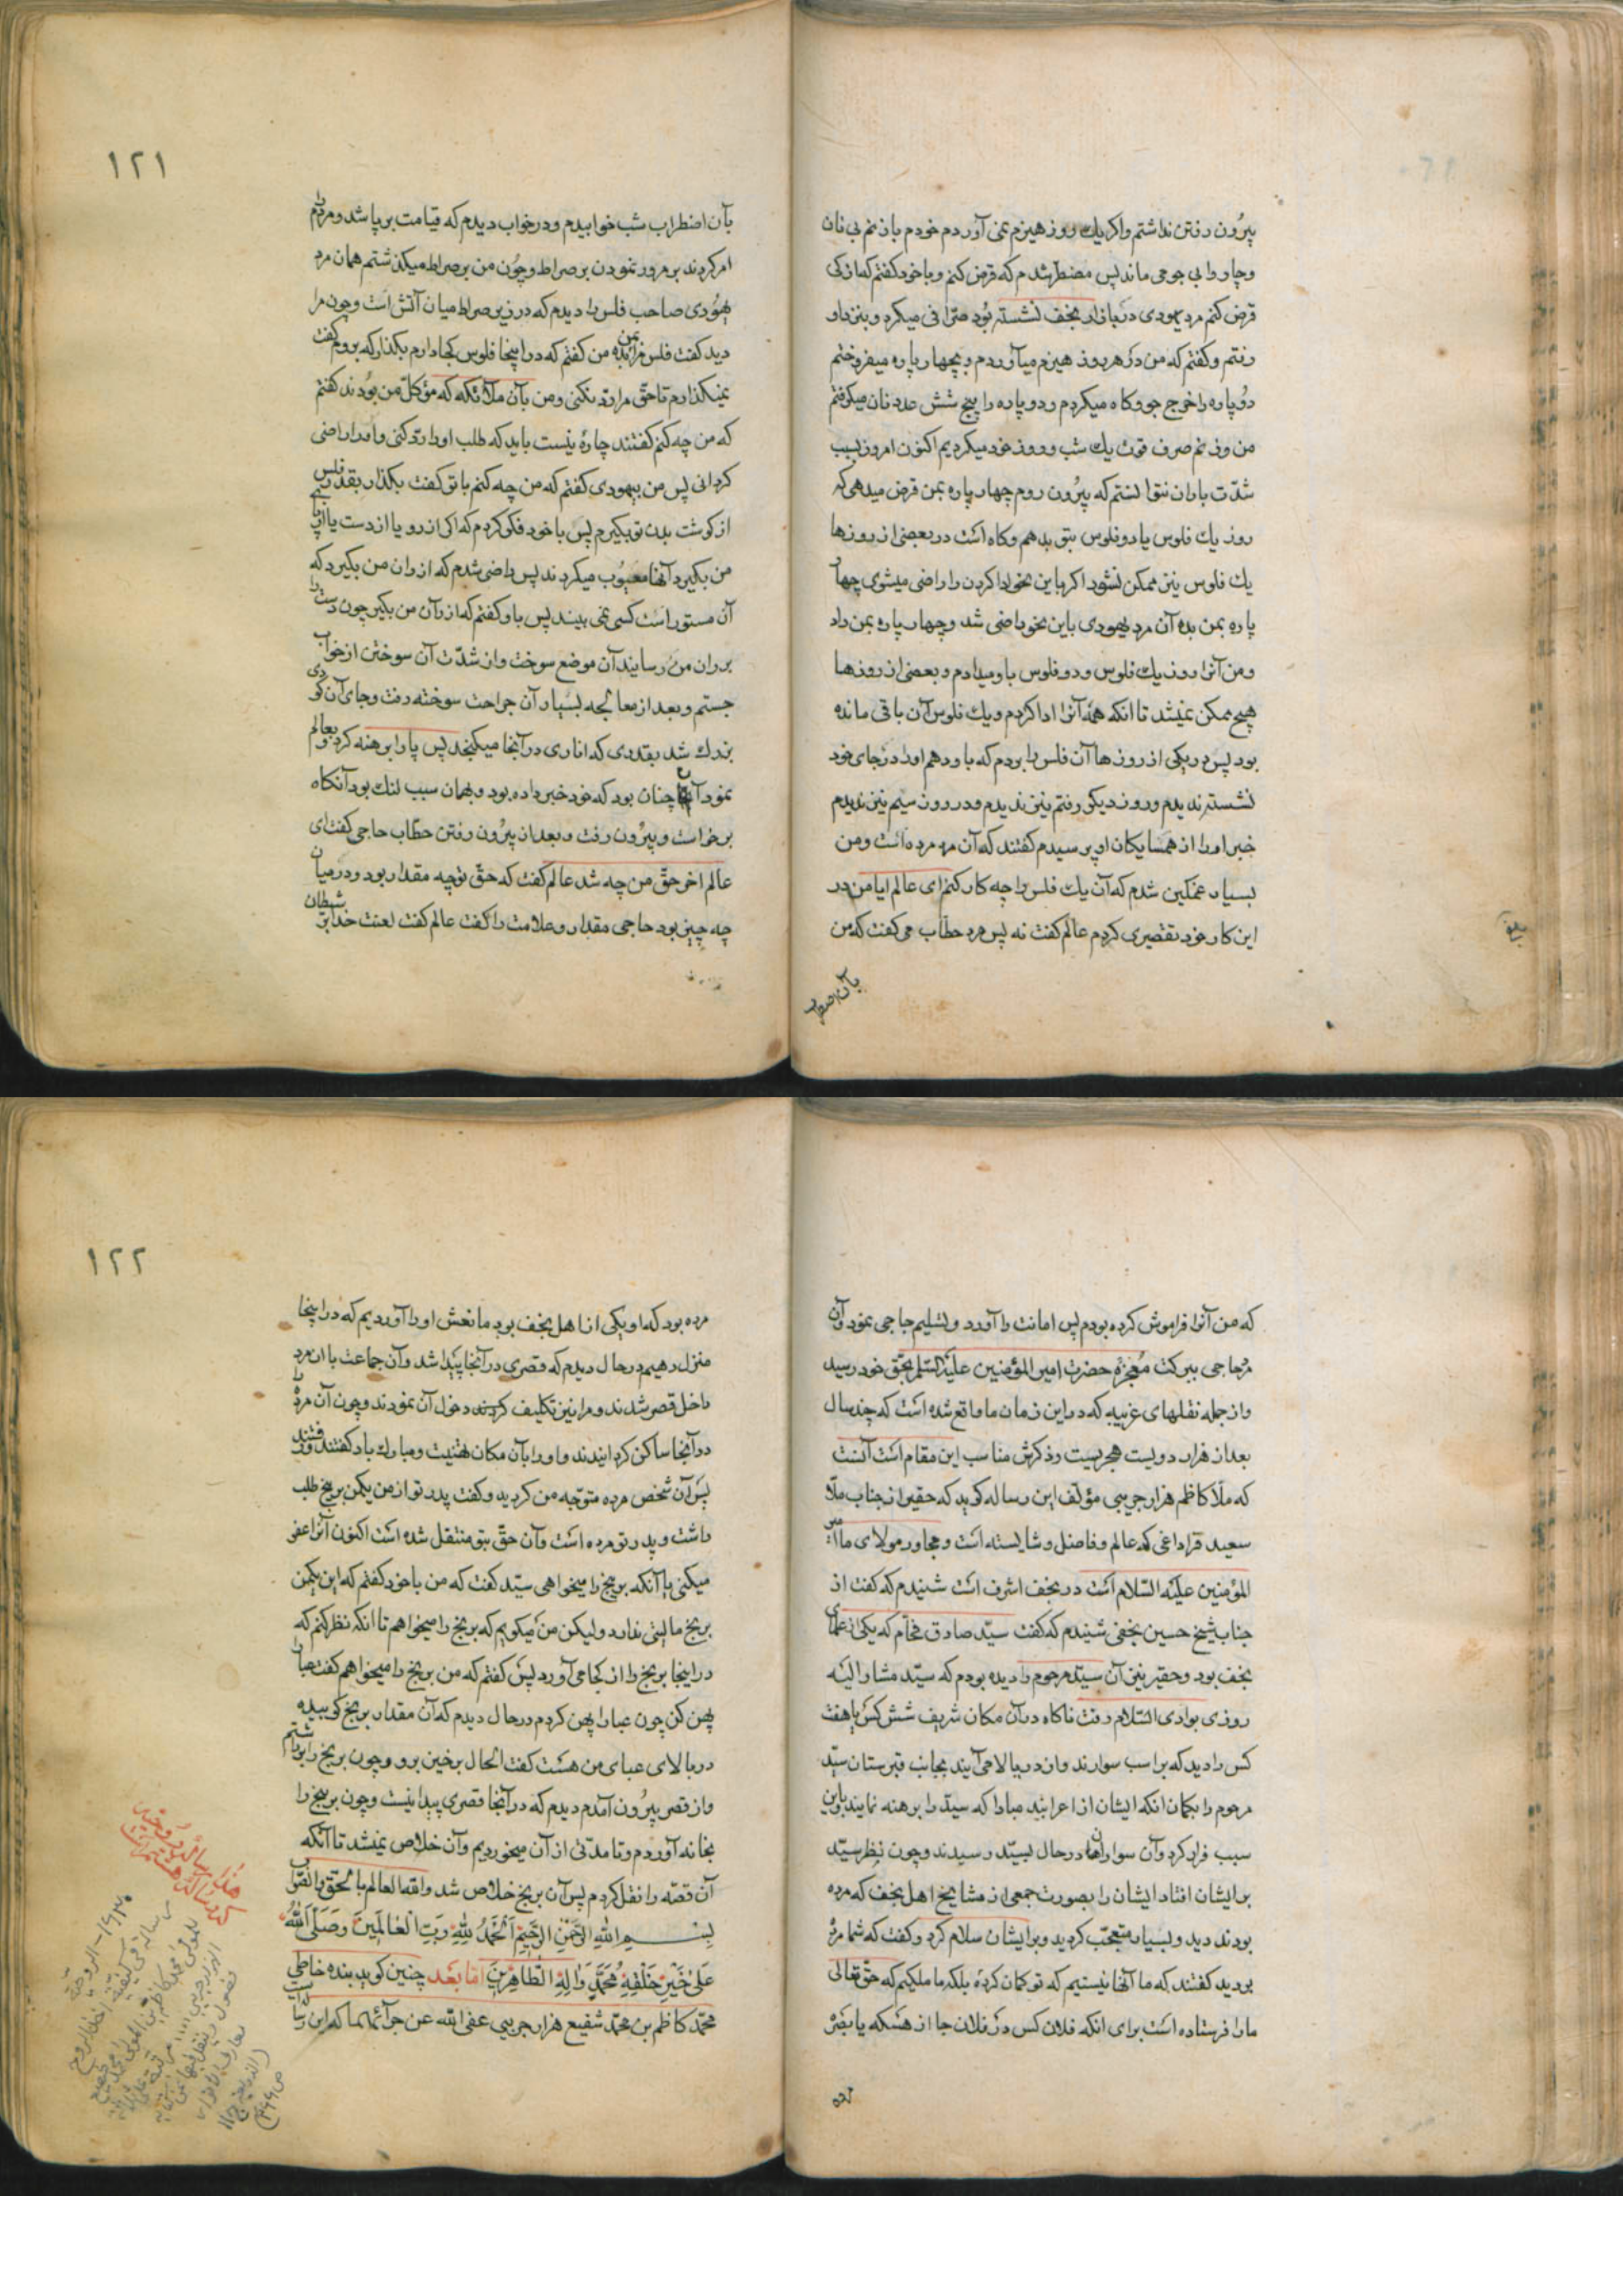 بیرون رفتن نداشتم واکر یك روز هیزم نمی آوردم خودم بازنم بی نان
وچاروا بی جو می ماند پس مضطر شدم که قرض کنم وبا خود کفتم که از کی
قرض کنم مرد یهودی در بازار نجف نشسته بود صرّافی میکرد و بنزد او
رفتم وکفتم که من در هر روز هیزم میآوردم و بچهار پاره میفروختم
دو پاره را خرج جو وکاه میکردم ودو پاره را پنج شش عدد نان میکرفتم
من وزنم صرف قوت یك شب وروز خود میکردیم اکنون امروز بسبب
شدّت باران نتوانستم که بیرون روم چهار پاره بمن قرض میدهی که
روز یك فلوس یا دو فلوس بتو بدهم وکاه است در بعضی از روزها
یك فلوس نیز ممکن نشود اکر باین نحو ادا کردن را راضی میشوی چهار
پاره بمن بده آن مرد یهودی باین نحو راضی شد وچهار پاره بمن داد
ومن آنرا روز یك فلوس ودو فلوس باو میدادم وبعضی از روزها
هیچ ممکن نمیشد تا انکه همه آنرا ادا کردم ویك فلوس آن باقی مانده
بود پس در یکی از روزها آن فلس را بردم که باو دهم اورا در جای خود
نشسته ندیدم وروز دیکر رفتم نیز ندیدم ودر روز سیم نیز ندیدم
خبر اورا از همسایکان او پرسیدم کفتند که آن مرد مرده است ومن
بسیار غمکین شدم که آن یك فلس را چه کار کنم ای عالم ایا من در
این کار خود تقصیری کردم عالم کفت نه پس مرد حطّاب می کفت که من
بآن اضطراب
١٢١
بآن اضطراب شب خوابیدم ودر خواب دیدم که قیامت برپا شد ومردم را
امر کردند بمرور نمودن بر صراط وچون من بر صراط میکذشتم همان مرد
یهودی صاحب فلس را دیدم که در زیر صراط میان آتش است وچون مرا
دید کفت فلس مرا بمن بده من کفتم که در اینجا فلوس کجا دارم بکذار که بروم کفت
نمیکذارم تا حقّ مرا ردّ نکنی ومن بآن ملائکه که موکّل من بودند کفتم
که من چه کنم کفتند چارهٔ نیست باید که طلب اورا ردّ کنی واورا راضی
کردانی پس من بیهودی کفتم که من چه کنم با تو کفت بکذار بقدر فلسی
از کوشت بدن تو بکیرم پس با خود فکر کردم که اکر از رو یا از دست یا از پای
من بکیرد آنها معیوب میکردند پس راضی شدم که از ران من بکیرد که
آن مستور است کسی نمی بیند پس باو کفتم که از ران من بکیر چون دست را
بر ران من رسانید آن موضع سوخت واز شدّت آن سوختن از خواب
جستم وبعد از معالجه بسیار آن جراحت سوخته رفت وجای آن کودی
بزرك شد بقدری که اناری در آنجا میکنجد پس پا را برهنه کرد وبعالم
نمود آن چنان بود که خود خبر داده بود وبهمان سبب لنك بود آنکاه
برخواست وبیرون رفت وبعد از بیرون رفتن حطّاب حاجی کفت ای
عالم اخر حقّ من چه شد عالم کفت که حقّ تو چه مقدار بود ودر میان
چه چیز بود حاجی مقدار وعلامت را کفت عالم کفت لعنت خدا بر شیطان
که من آنرا فراموش کرده بودم پس امانت را آورد وتسلیم حاجی نمود وآن
مرد حاجی ببرکت معجزهٔ حضرت امیر المؤمنین علیه السّلم بحقّ خود رسید
واز جمله نقلهای غریبه که در این زمان ما واقع شده است که چند سال
بعد از هزار دویست هجریست وذکرش مناسب این مقام است آنست
که ملّا کاظم هزارجریبی مؤلف این رساله کوید که حقیر از جناب ملّا
سعید قراداغی که عالم وفاضل وشایسته است ومجاور مولای ما امیر
المؤمنین علیه السّلام است در نجف اشرف است شنیدم که کفت از
جناب شیخ حسین نجفی شنیدم که کفت سیّد صادق فحّام که یکی از علمای
نجف بود وحقیر نیز آن سیّد مرحوم را دیده بودم که سیّد مشار الیه
روزی بوادی السّلام رفت ناکاه در آن مکان شریف شش کس یا هفت
کس را دید که بر اسب سوارند واز در ببالا می آیند بجانب قبرستان سیّد
مرحوم را بکمان انکه ایشان از اعرابند مبادا که سیّد را برهنه نمایند باین
سبب فرار کرد وآن سواران در حال بسیّد رسیدند وچون نظر سیّد
بر ایشان افتاد ایشان را بصورت جمعی از مشایخ اهل نجف که مرده
بودند دید وبسیار متعجّب کردید وبر ایشان سلام کرد وکفت که شما مرده
بودید کفتند که ما آنها نیستیم که تو کمان کردهٔ بلکه ما ملکیم که حقّ تعالی
مارا فرستاده است برای انکه فلان کس در فلان جا از هسکه یا بصره
مرده
١٢٢
مرده بود که او یکی از اهل نجف بود ما نعش اورا آوردیم که در اینجا
منزل دهیم در حال دیدم که قصری در آنجا پیدا شد وآن جماعت با ان مرد
داخل قصر شدند ومرا نیز تکلیف کردند دخول آن نمودند وچون آن مرد را
در آنجا ساکن کردانیدند واورا بآن مکان تهنیت ومبارك باد کفتند ورفتند
پس آن شخص مرده متوجّه من کردید وکفت پدر تو از من یکمن برنج طلب
داشت وپدر تو مرده است وآن حقّ بتو منتقل شده است اکنون آنرا عفو
میکنی یا آنکه برنج را میخواهی سیّد کفت که من با خود کفتم که این یکمن
برنج مالیتی ندارد ولیکن من میکویم که برنج را میخواهم تا انکه نظر کنم که
در اینجا برنج را از کجا می آورد پس کفتم که من برنج را میخواهم کفت عبا را
پهن کن چون عبا را پهن کردم در حال دیدم که آن مقدار برنج کوبیده
در بالای عبای من هست کفت الحال برخیز برو وچون برنج را برداشتم
واز قصر بیرون آمدم دیدم که در آنجا قصری پیدا نیست وچون برنج را
بخانه آوردم وتا مدّتی از آن میخوردیم وآن خلاص نمیشد تا آنکه
آن قصّه را نقل کردم پس آن برنج خلاص شد والله العالم بالحقّ والصّواب
بسم الله الرّحمن الرّحیم الحمد لله ربّ العالمین وصلّی الله
علی خیر خلقه محمّد واله الطّاهرین امّا بعد چنین کوید بنده خاطی
محمّد کاظم بن محمّد شفیع هزارجریبی عفی الله عن جرآئمهما که این رساله ایست